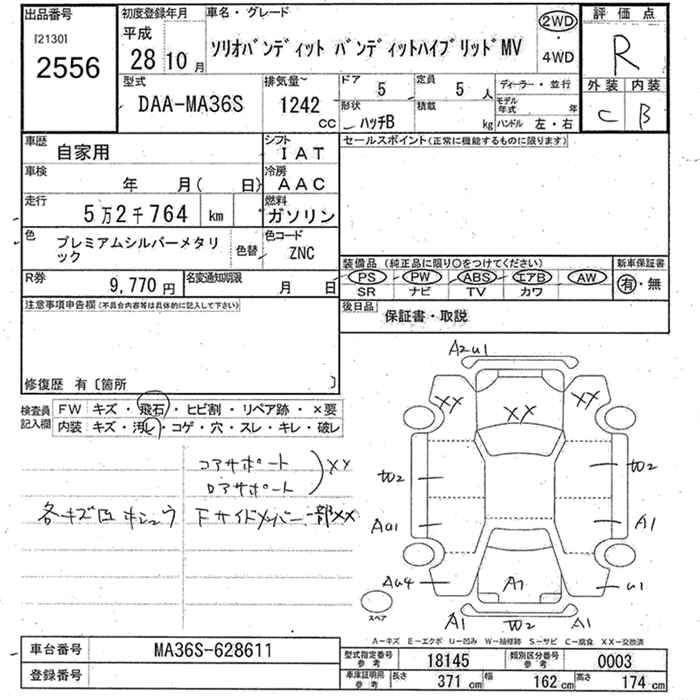 出品番号
[2130]
2556
初度登録年月
平成
28 10 月
車名・グレード
ソリオバンディット バンディットハイブリッドMV
2WD
・
4WD
評価点
R
外装 内装
C B
型式
DAA-MA36S
排気量~
1242
CC
ドア
5
定員
5 人
ディーラー・並行
形状
ハッチB
積載
kg
モデル年式
年
ハンドル 左・右
車歴
自家用
シフト
IAT
セールスポイント(正常に機能するものに限ります)
車検
年 月( 日)
冷房
AAC
走行
5万2千764 km
燃料
ガソリン
色
プレミアムシルバーメタリック
色替
色コード
ZNC
装備品 (純正品に限り○をつけてください)
新車保証書
PS PW ABS エアB AW
SR ナビ TV カワ
有・無
R券
9,770 円
名変通知期限
月 日
後日品
保証書・取説
注意事項申告欄(不具合内容等は具体的に記入して下さい)
修復歴 有〔箇所 〕
検査員記入欄
FW キズ・飛石・ヒビ割・リペア跡・×要
内装 キズ・汚レ・コゲ・穴・スレ・キレ・破レ
コアサポート
ロアサポート
XX
各キズ凹 ホシュウ
Fサイドメンバー一部XX
A2U1
XX
XX
XX
W2
W2
AU1
A1
AU4
A1
U1
A1
W2
A1
スペア
A-キズ E-エクボ U-凹み W-補修跡 S-サビ C-腐食 XX-交換済
車台番号
MA36S-628611
登録番号
型式指定番号
参考
18145
類別区分番号
参考
0003
車庫証明用
参考
長さ
371 cm
幅
162 cm
高さ
174 cm